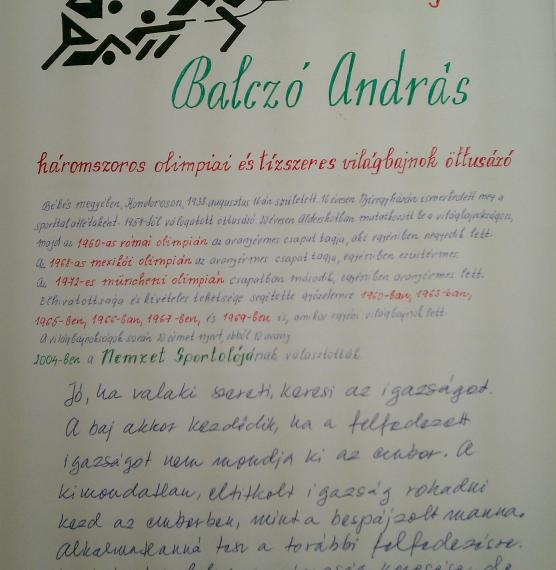 Balczó András
háromszoros olimpiai és tízszeres világbajnok öttusázó
Békés megyében, Kondoroson, 1938. augusztus 16-án született. 16 évesen Nyíregyházán ismerkedett meg a
sporttal atlétaként. 1957-től válogatott öttusázó. 20 évesen Aldershotban mutatkozott be a világbajnokságon,
majd az 1960-as római olimpián az aranyérmes csapat tagja, aki egyéniben negyedik lett.
Az 1968-as mexikói olimpián az aranyérmes csapat tagja, egyéniben ezüstérmes.
Az 1972-es müncheni olimpián csapatban második, egyéniben aranyérmes lett.
Elhivatottsága és kivételes tehetsége segítette győzelemre 1960-ban, 1963-ban,
1965-ben, 1966-ban, 1967-ben, és 1969-ben is, amikor egyéni világbajnok lett.
A világbajnokságok során érmet nyert, ebből 10 arany
2004-ben a Nemzet Sportolójának választották.
Jó, ha valaki szereti, keresi az igazságot.
A baj akkor kezdődik, ha a felfedezett
igazságot nem mondja ki az ember. A
kimondatlan, eltitkolt igazság rohadni
kezd az emberben, mint a bespájzolt manna.
Alkalmatlanná tesz a további felfedezésre.